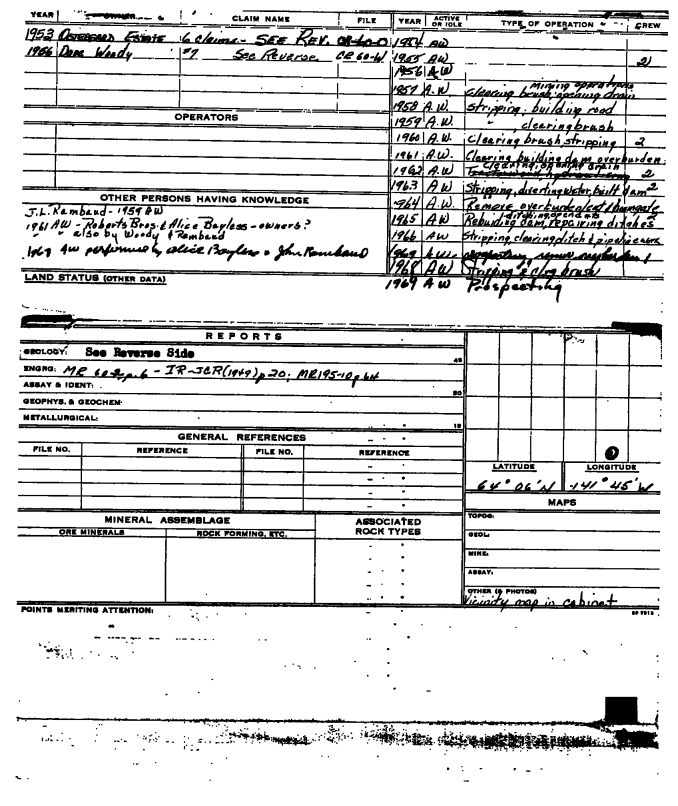 YEAR OWNER CLAIM NAME FILE YEAR ACTIVE OR IDLE TYPE OF OPERATION CREW
1953 Ostergard Estate 6 claims - SEE REV. CR-60-D 1954 AW
1956 Dave Woody #7 See Reverse CR 60-W 1955 AW 2
1956 AW
1957 A.W. Mining operations clearing brush, opening drain
1958 A.W. Stripping, building road
OPERATORS
1959 A.W. " , clearing brush
1960 A.W. Clearing brush, stripping 2
1961 A.W. Clearing, building dam, overburden
1962 A.W. Clearing, opening drain 2
1963 A.W Stripping, diverting water, built dam 2
OTHER PERSONS HAVING KNOWLEDGE
1964 A.W. Remove overburden
J.L. Rambaud - 1959 AW
1965 AW Rebuilding dam, repairing ditches 2
1961 AW - Roberts Bros. & Alice Bayless - owners?
" also by Woody & Rambaud
1966 AW Stripping, clearing, ditch & pipeline work
1967 AW performed by Alice Bayless & John Rambaud
1968 AW Stripping & clrg brush
LAND STATUS (OTHER DATA)
1969 AW Prospecting
REPORTS
GEOLOGY: See Reverse Side
45
ENGRG: MR 60-2, p. 6 - IR-JCR(1949) p 20; MR195-10 p. 64
ASSAY & IDENT:
30
GEOPHYS. & GEOCHEM:
METALLURGICAL:
15
GENERAL REFERENCES
FILE NO. REFERENCE FILE NO. REFERENCE
LATITUDE LONGITUDE
64° 06'N -141° 45'W
MAPS
MINERAL ASSEMBLAGE ASSOCIATED ROCK TYPES
ORE MINERALS ROCK FORMING, ETC.
TOPOG:
GEOL:
MINE:
ASSAY:
OTHER (& PHOTOS)
Vicinity map in cabinet
POINTS MERITING ATTENTION: